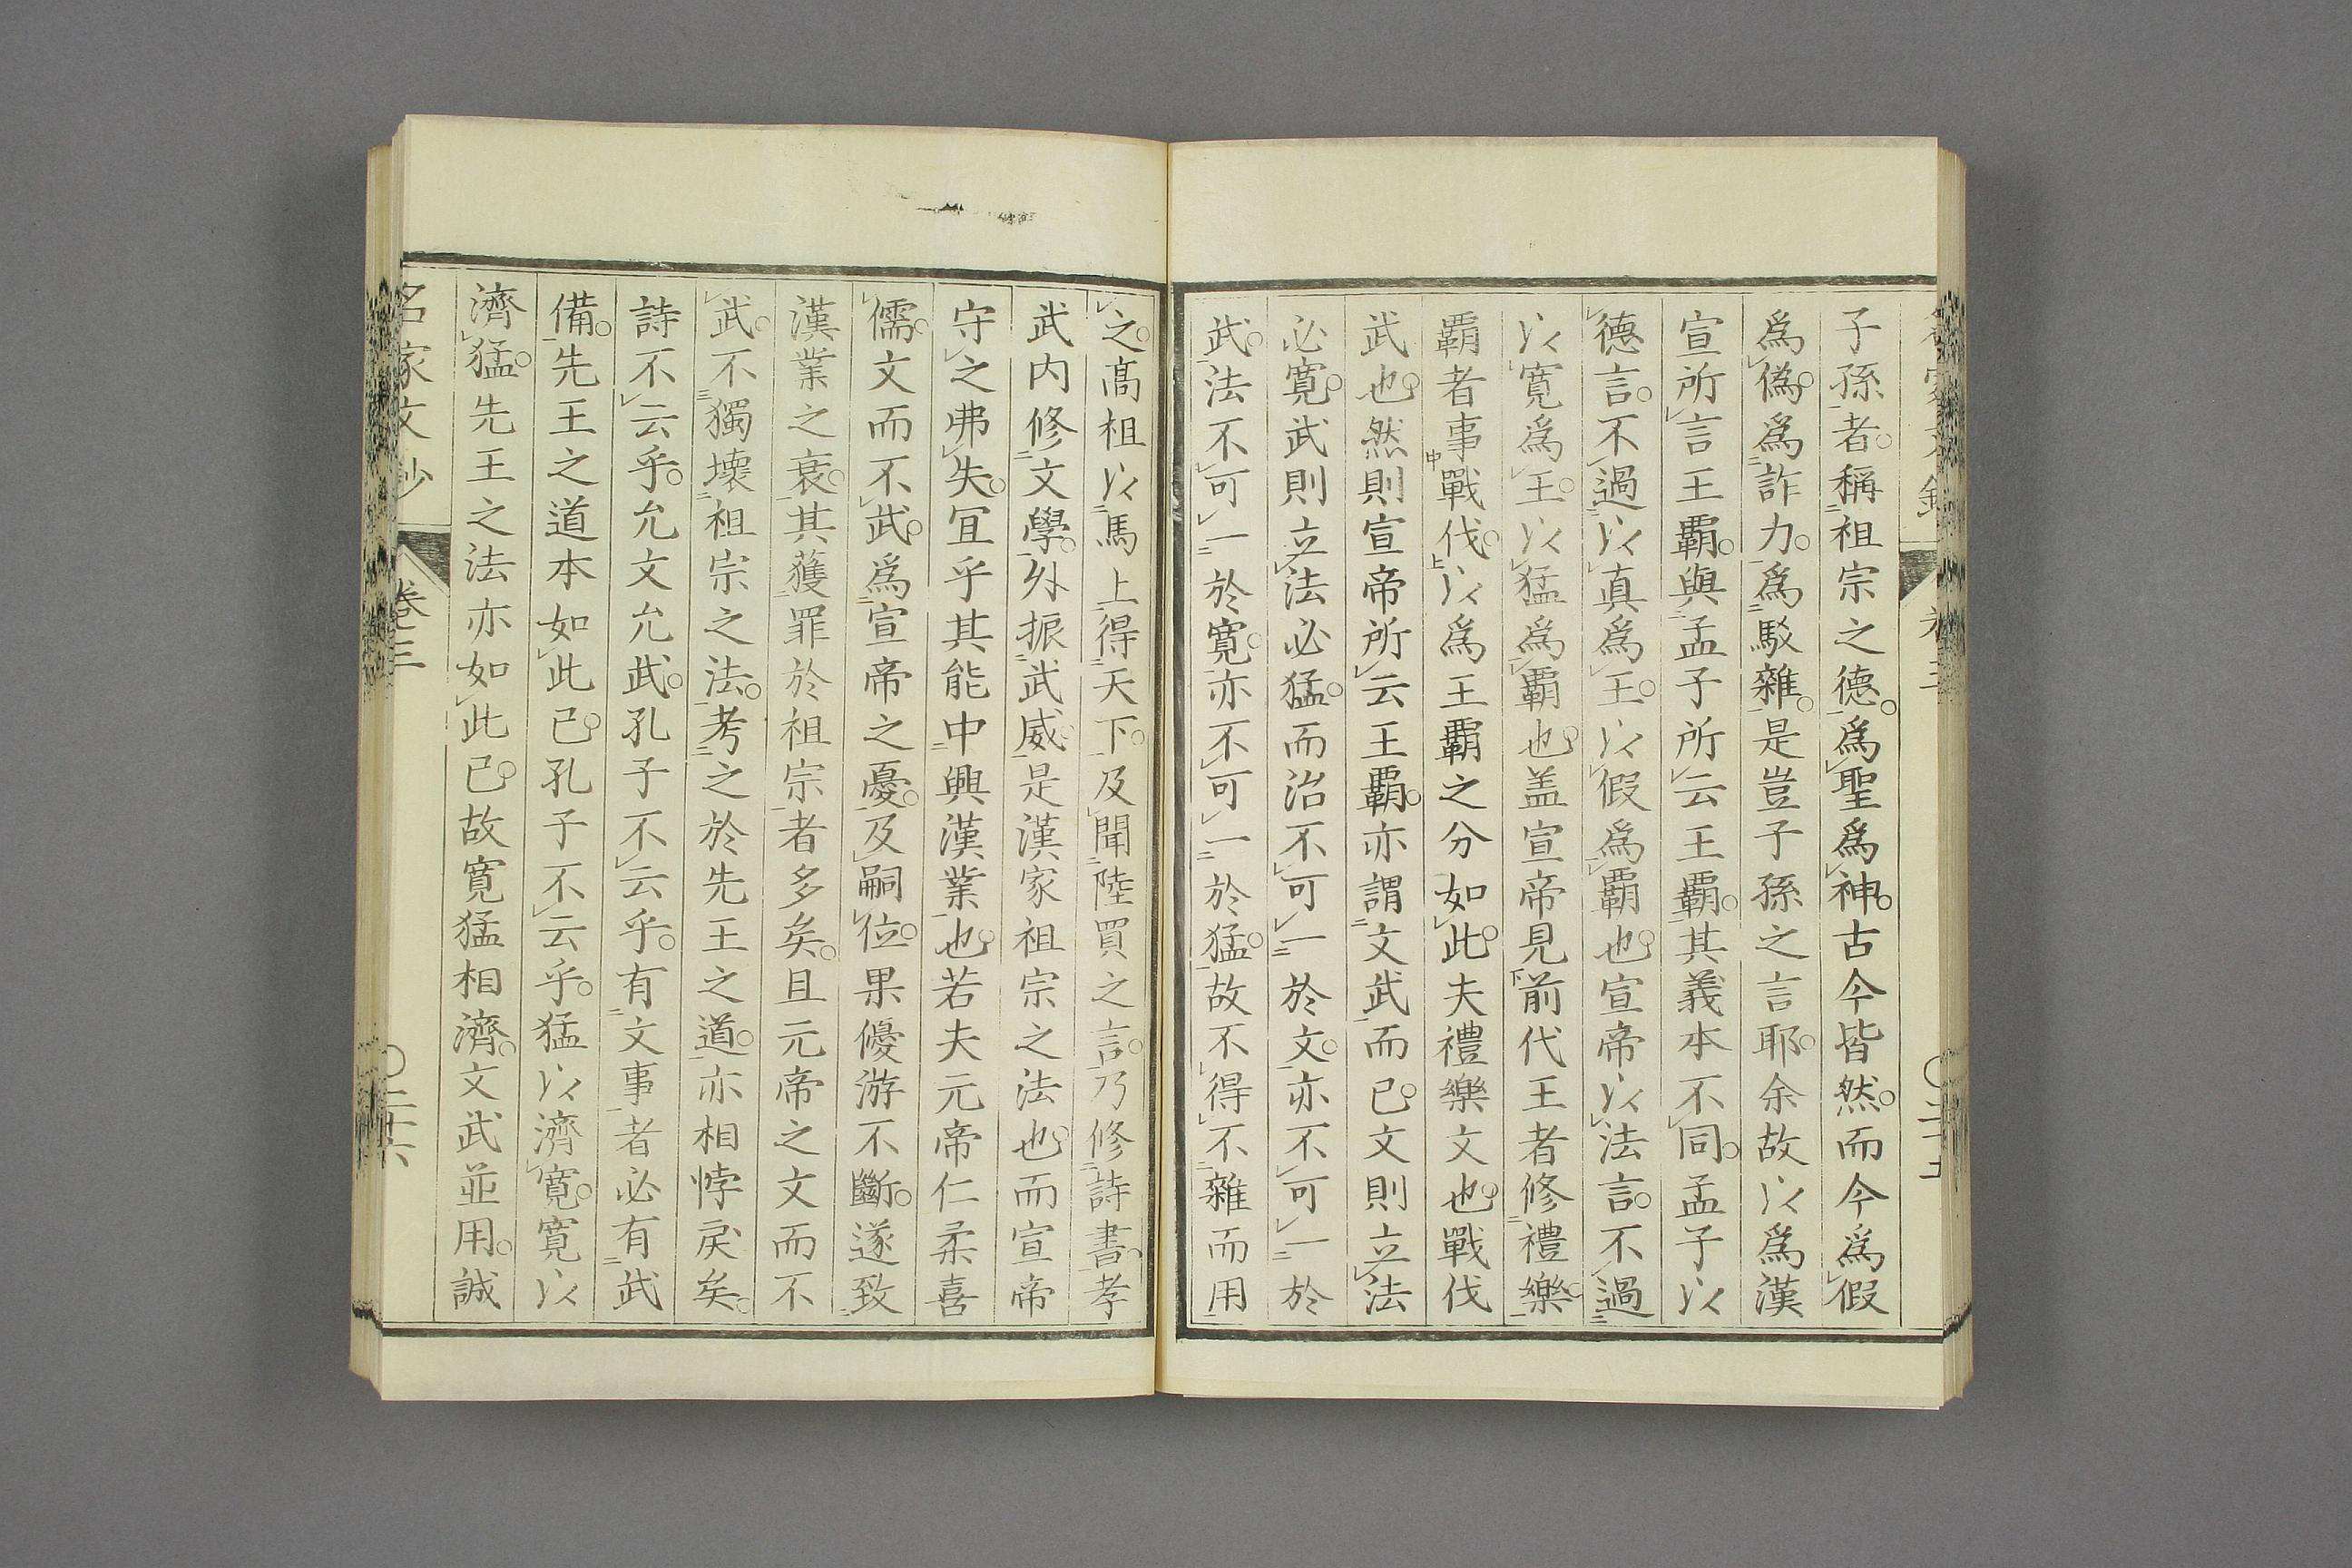 子孫者稱祖宗之德爲聖爲神古今皆然而今爲假
爲僞爲詐力爲駁雜是豈子孫之言耶余故以爲漢
宣所言王覇與孟子所云王覇其義本不同孟子以
德言不過以真爲王以假爲覇也宣帝以法言不過
以寬爲王以猛爲覇也盖宣帝見前代王者修禮樂
覇者事戰伐以爲王覇之分如此夫禮樂文也戰伐
武也然則宣帝所云王覇亦謂文武而已文則立法
必寬武則立法必猛而治不可一於文亦不可一於
武法不可一於寬亦不可一於猛故不得不雜而用
之高祖以馬上得天下及聞陸買之言乃修詩書孝
武内修文學外振武威是漢家祖宗之法也而宣帝
守之弗失冝乎其能中興漢業也若夫元帝仁柔喜
儒文而不武爲宣帝之憂及嗣位果優游不斷遂致
漢業之衰其獲罪於祖宗者多矣且元帝之文而不
武不獨壞祖宗之法考之於先王之道亦相悖戾矣
詩不云乎允文允武孔子不云乎有文事者必有武
備先王之道本如此已孔子不云乎猛以濟寬寬以
濟猛先王之法亦如此已故寬猛相濟文武並用誠
名家文抄
卷三
〇二十六